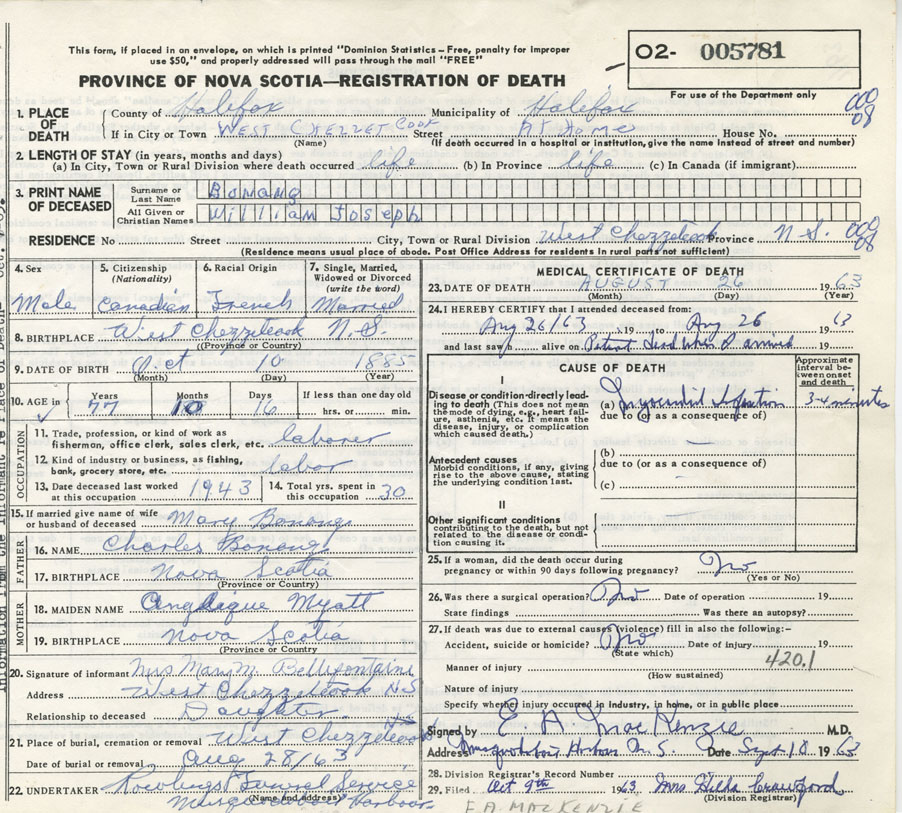 This form, if placed in an envelope, on which is printed "Dominion Statistics – Free, penalty for improper
use $50," and properly addressed will pass through the mail "FREE"
PROVINCE OF NOVA SCOTIA—REGISTRATION OF DEATH
O2- 005781
For use of the Department only
1. PLACE OF DEATH County of Halifax Municipality of Halifax 000 08
If in City or Town West Chezzet Cook Street At Home House No.
(Name) (If death occurred in a hospital or institution, give the name instead of street and number)
2. LENGTH OF STAY (in years, months and days)
(a) In City, Town or Rural Division where death occurred life (b) In Province life (c) In Canada (if immigrant)
3. PRINT NAME OF DECEASED
Surname or Last Name Bonang
All Given or Christian Names William Joseph
RESIDENCE No Street City, Town or Rural Division West Chezzetcook Province N.S. 000 08
(Residence means usual place of abode. Post Office Address for residents in rural parts not sufficient)
4. Sex Male
5. Citizenship (Nationality) Canadian
6. Racial Origin French
7. Single, Married, Widowed or Divorced (write the word) Married
8. BIRTHPLACE West Chezzetcook N.S.
(Province or Country)
9. DATE OF BIRTH Oct 10 1885
(Month) (Day) (Year)
10. AGE in Years 77 Months 10 Days 16 If less than one day old hrs. or min.
OCCUPATION
11. Trade, profession, or kind of work as fisherman, office clerk, sales clerk, etc. laborer
12. Kind of industry or business, as fishing, bank, grocery store, etc. labor
13. Date deceased last worked at this occupation 1943
14. Total yrs. spent in this occupation 30
15. If married give name of wife or husband of deceased Mary Bonang
FATHER
16. NAME Charles Bonang
17. BIRTHPLACE Nova Scotia
(Province or Country)
MOTHER
18. MAIDEN NAME Angelique Myatt
19. BIRTHPLACE Nova Scotia
(Province or Country
20. Signature of informant Mrs Mary M. Bellefontaine
Address West Chezzetcook N.S
Relationship to deceased Daughter
21. Place of burial, cremation or removal West Chezzetcook N.S
Date of burial or removal Aug 28/63
22. UNDERTAKER Rowlings Funeral Service
(Name and address) Musquodoboit Harbour
MEDICAL CERTIFICATE OF DEATH
23. DATE OF DEATH August 26 1963
(Month) (Day) (Year)
24. I HEREBY CERTIFY that I attended deceased from:
Aug 26/63, 19 to Aug 26 1963
and last saw h alive on Patient dead when I arrived 19
CAUSE OF DEATH
Approximate interval between onset and death
I
Disease or condition directly leading to death (This does not mean the mode of dying, e.g., heart failure, asthenia, etc. It means the disease, injury, or complication which caused death.)
(a) Myocardial Infarction 3-4 minutes
due to (or as a consequence of)
Antecedent causes
Morbid conditions, if any, giving rise to the above cause, stating the underlying condition last.
(b)
due to (or as a consequence of)
(c)
II
Other significant conditions
contributing to the death, but not related to the disease or condition causing it.
25. If a woman, did the death occur during pregnancy or within 90 days following pregnancy? No
(Yes or No)
26. Was there a surgical operation? No Date of operation 19
State findings Was there an autopsy?
27. If death was due to external causes (violence) fill in also the following:–
Accident, suicide or homicide? No Date of injury 19
(State which)
420.1
Manner of injury
(How sustained)
Nature of injury
Specify whether injury occurred in industry, in home, or in public place
Signed by E A MacKenzie M.D.
Address Musquodoboit Harbour N.S. Date Sept 18 1963
28. Division Registrar's Record Number
29. Filed Oct 9th 1963 Mrs Hilda Crawford
(Division Registrar)
E.A. MACKENZIE